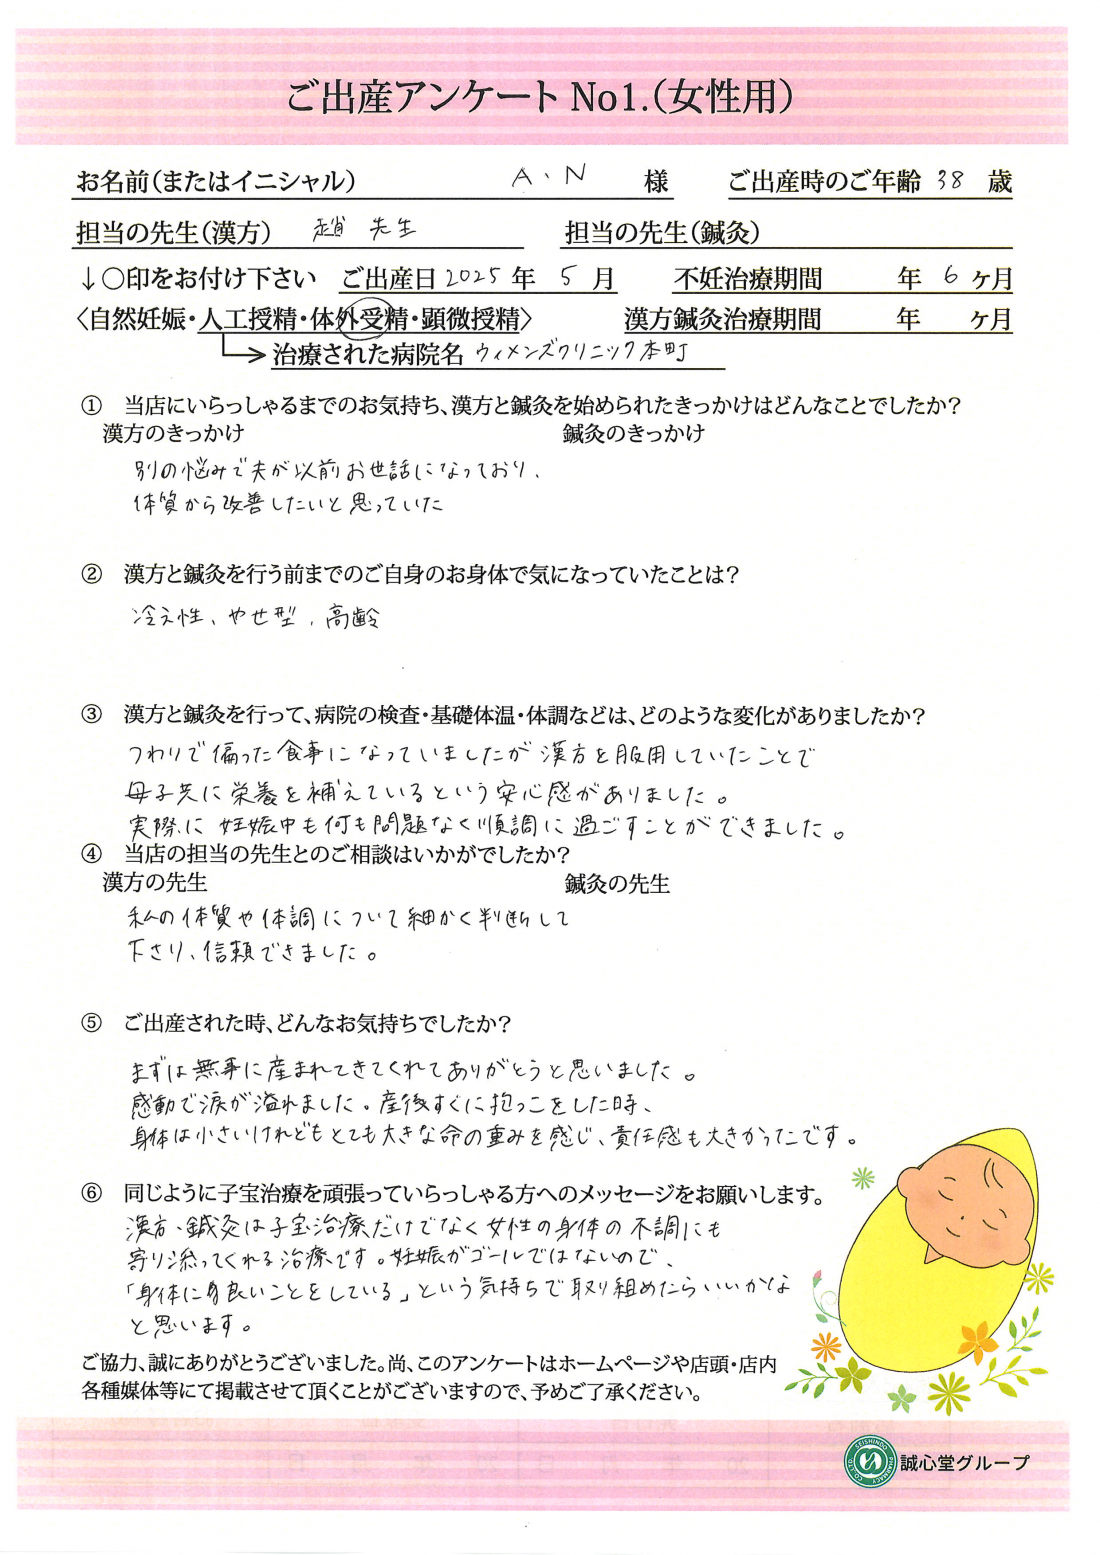 ご出産アンケート No1.(女性用)
お名前(またはイニシャル) A.N 様 ご出産時のご年齢 38 歳
担当の先生(漢方) 趙 先生 担当の先生(鍼灸)
↓○印をお付け下さい ご出産日 2025 年 5 月 不妊治療期間 年 6 ヶ月
〈自然妊娠・人工授精・体外受精・顕微授精〉 漢方鍼灸治療期間 年 ヶ月
治療された病院名 ウィメンズクリニック本町
① 当店にいらっしゃるまでのお気持ち、漢方と鍼灸を始められたきっかけはどんなことでしたか?
漢方のきっかけ 鍼灸のきっかけ
別の悩みで夫が以前お世話になっており、
体質から改善したいと思っていた
② 漢方と鍼灸を行う前までのご自身のお身体で気になっていたことは?
冷え性、やせ型、高齢
③ 漢方と鍼灸を行って、病院の検査・基礎体温・体調などは、どのような変化がありましたか?
つわりで偏った食事になっていましたが漢方を服用していたことで
母子共に栄養を補えているという安心感がありました。
実際に妊娠中も何も問題なく順調に過ごすことができました。
④ 当店の担当の先生とのご相談はいかがでしたか?
漢方の先生 鍼灸の先生
私の体質や体調について細かく判断して
下さり、信頼できました。
⑤ ご出産された時、どんなお気持ちでしたか?
まずは無事に産まれてきてくれてありがとうと思いました。
感動で涙が溢れました。産後すぐに抱っこをした時、
身体は小さいけれどもとても大きな命の重みを感じ、責任感も大きかったです。
⑥ 同じように子宝治療を頑張っていらっしゃる方へのメッセージをお願いします。
漢方、鍼灸は子宝治療だけでなく女性の身体の不調にも
寄り添ってくれる治療です。妊娠がゴールではないので、
「身体に良いことをしている」という気持ちで取り組めたらいいかな
と思います。
ご協力、誠にありがとうございました。尚、このアンケートはホームページや店頭・店内
各種媒体等にて掲載させて頂くことがございますので、予めご了承ください。
SEISHINDO PHARMACY CO.,LTD. 誠心堂グループ